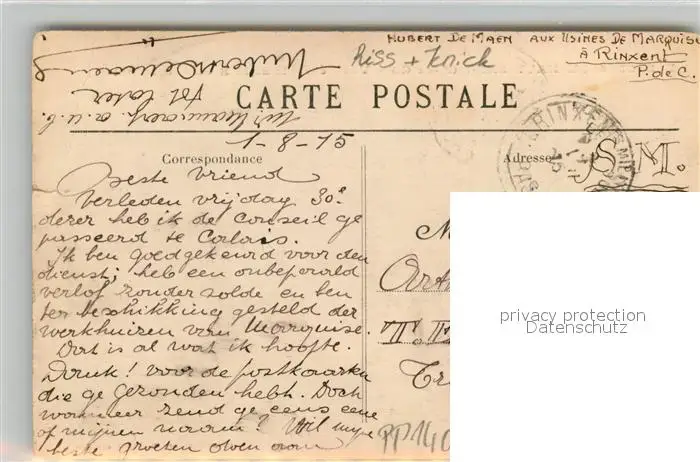 HUBERT DE MAEN AUX USINES DE MARQUISE
à RINXENT
P. de C.
Riss + Knick
Hubert Demaen
tot later
CARTE POSTALE
1-8-15
Correspondance
Adresse
S. M.
RINXENT
Beste Vriend
Verleden vrijdag 30e
dezer heb ik de Conseil ge
passeerd te Calais.
Ik ben goedgekeurd voor den
dienst; heb een onbepaald
verlof zonder solde en ben
ter beschikking gesteld der
werkhuizen van Marquise.
Dat is al wat ik hoopte.
Dank! voor de postkaarten
die ge gezonden hebt. Doch
wanneer zend ge eens eene
of mijnen naam? Wil mijne
beste groeten doen aan
privacy protection
Datenschutz
PP140